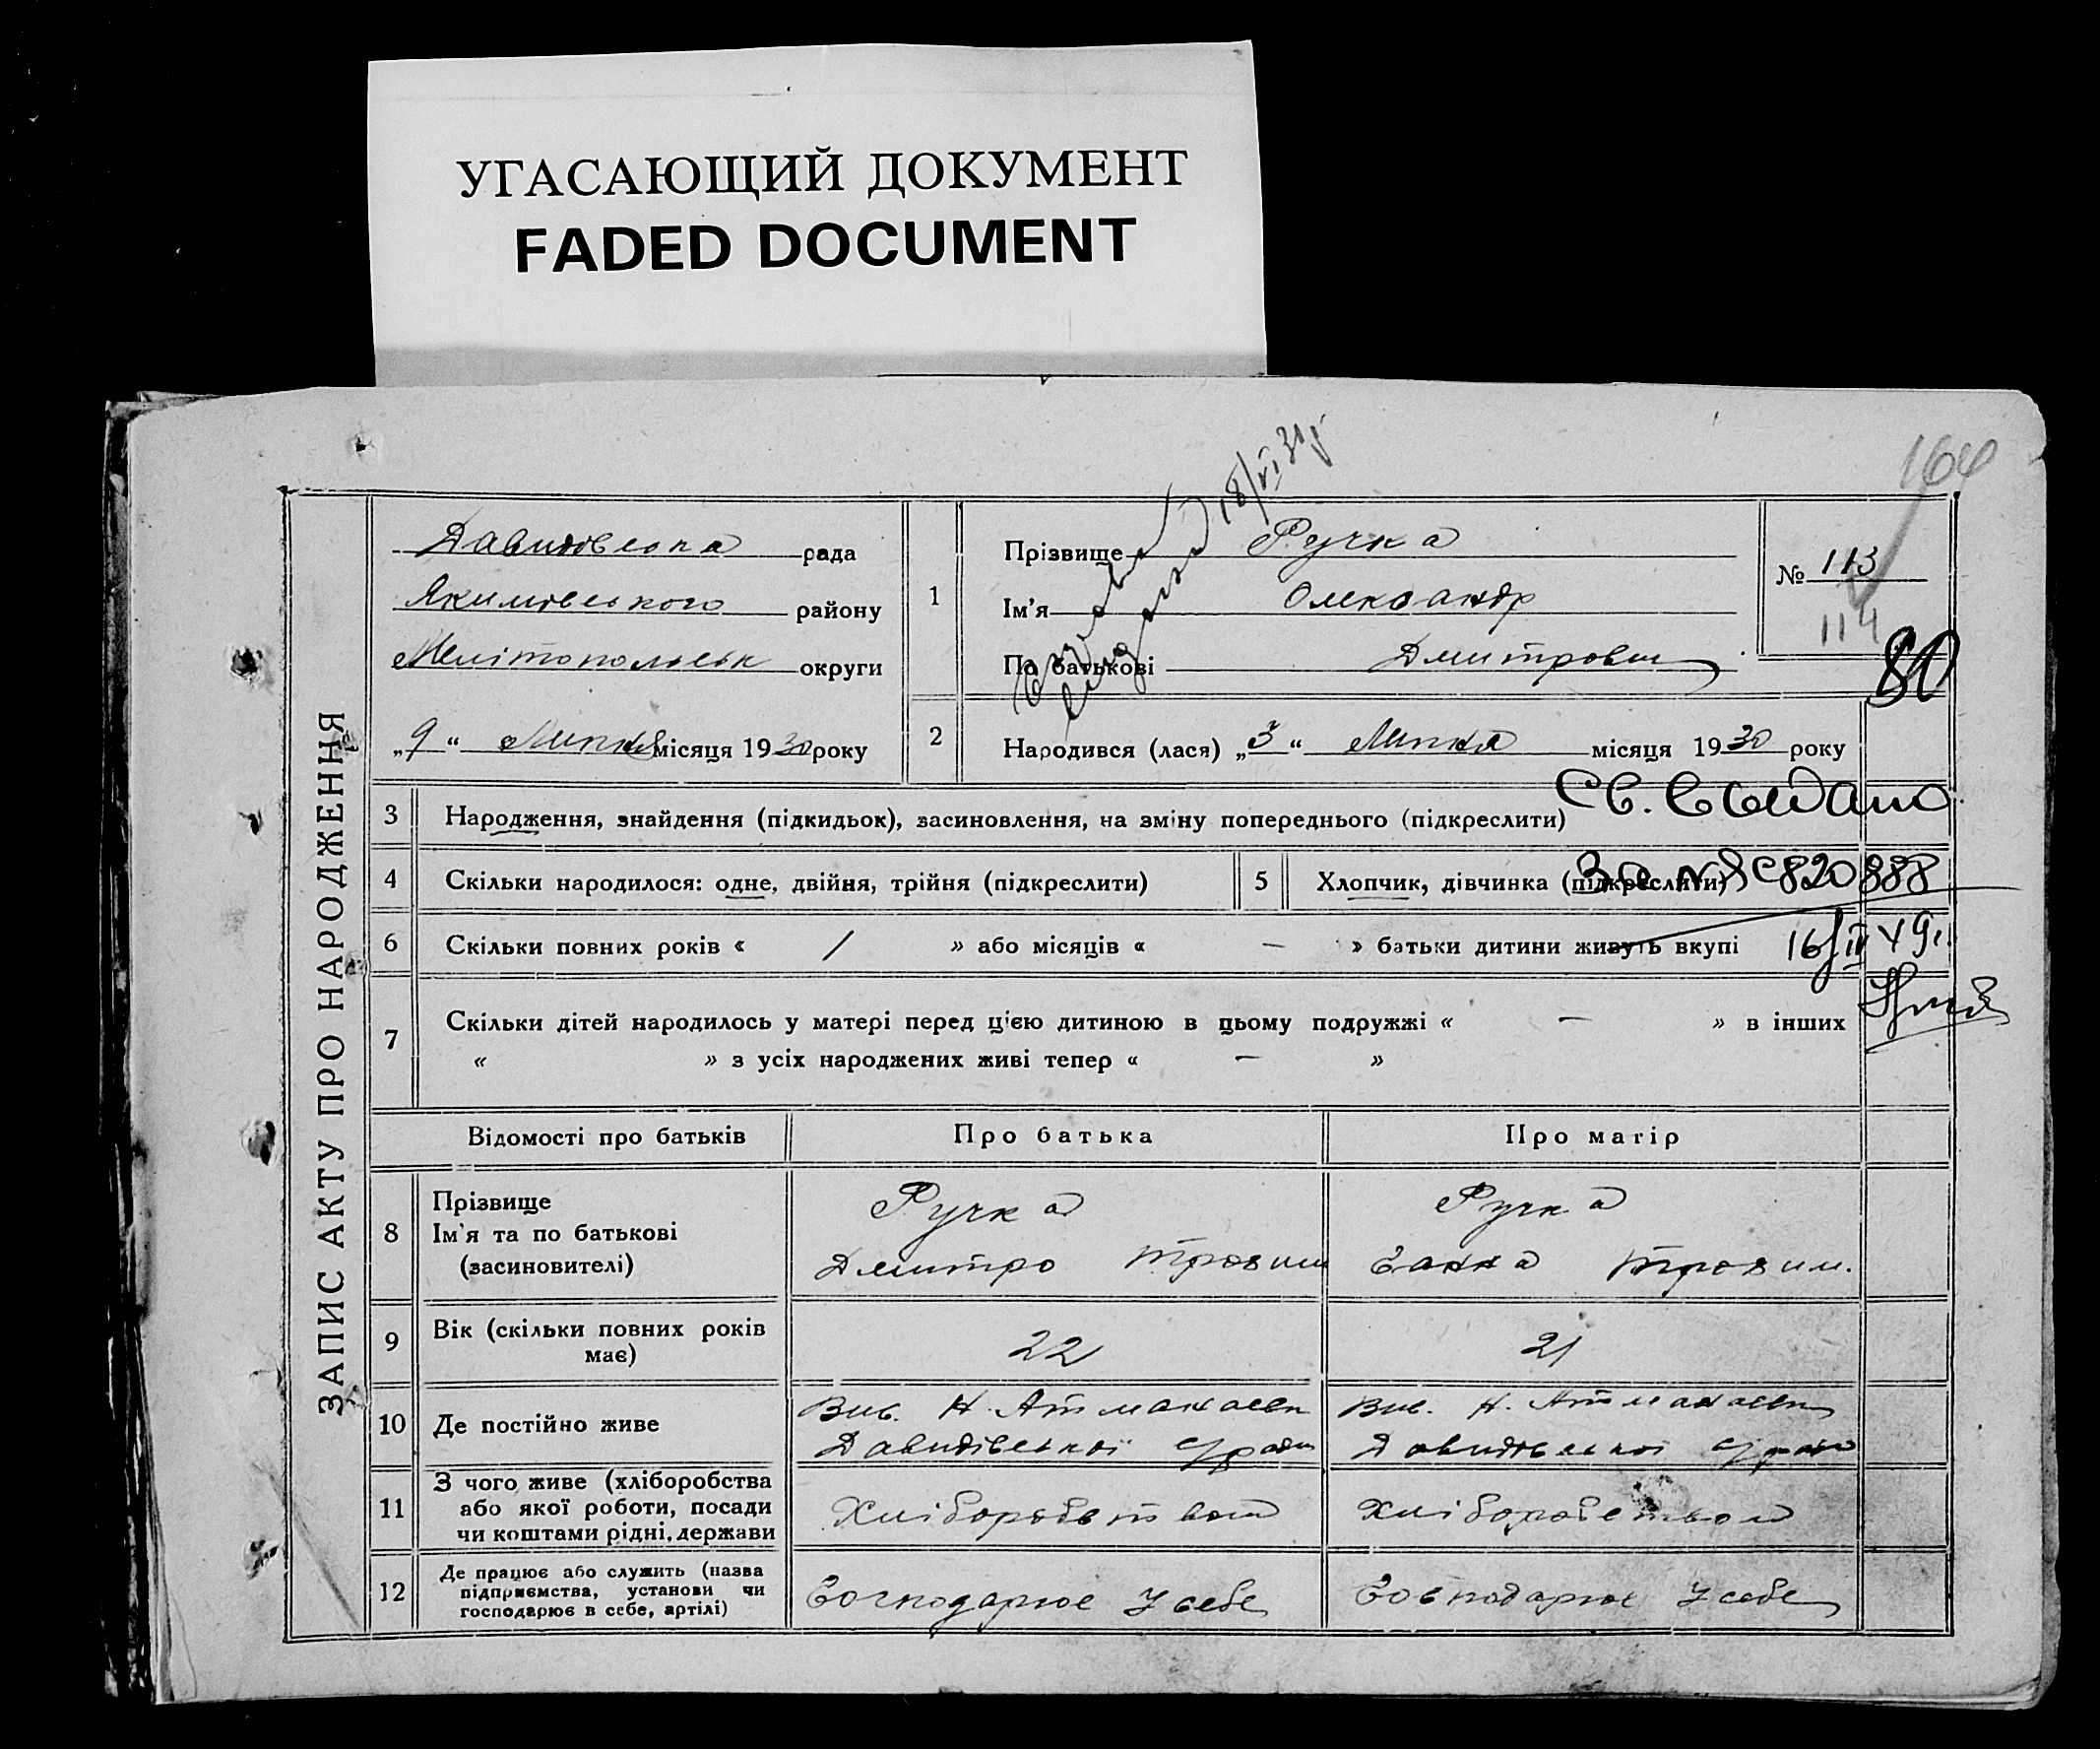 УГАСАЮЩИЙ ДОКУМЕНТ
FADED DOCUMENT
164
ЗАПИС АКТУ ПРО НАРОДЖЕННЯ
Давидовська рада
Якимовського району
Мелітопольськ округи
„9“ Липня місяця 1930 року
18/VI 31 г
1
Прізвище Ручка
Ім'я Олександр
По батькові Дмитрович
№ 113
114
80
2
Народився (лася) „3“ Липня місяця 1930 року
Св. выдано
3 Народження, знайдення (підкидьок), засиновлення, на зміну попереднього (підкреслити)
4 Скільки народилося: одне, двійня, трійня (підкреслити)
5 Хлопчик, дівчинка (підкреслити)
за № 820888
6 Скільки повних років « / » або місяців « — » батьки дитини живуть вкупі
16/IV 49 г.
7 Скільки дітей народилось у матері перед цією дитиною в цьому подружжі « — » в інших
« » з усіх народжених живі тепер « — »
Відомості про батьків Про батька Про матір
8
Прізвище
Ім'я та по батькові
(засиновителі)
Ручка
Дмитро Трохим
Ручка
Ганна Трохим.
9
Вік (скільки повних років
має)
22
21
10 Де постійно живе
Вис. Н. Атманаевк
Давидівської с/ради
Вис. Н. Атманаевк
Давидовської с/ради
11
З чого живе (хліборобства
або якої роботи, посади
чи коштами рідні, держави
Хліборобством
Хліборобством
12
Де працює або служить (назва
підприємства, установи чи
господарює в себе, артілі)
Господарює у себе
Господарює у себе